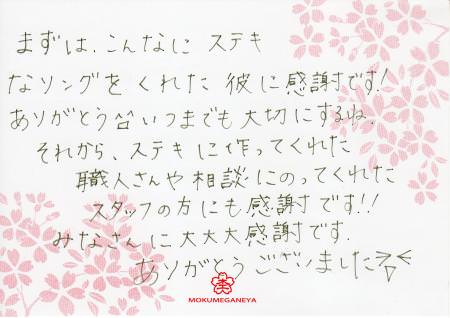 まずは、こんなに ステキ
なリングを くれた 彼に感謝です!
ありがとう^^いつまでも大切にするね.
それから、ステキに作ってくれた
職人さんや相談にのってくれた
スタッフの方にも感謝です!!
みなさんに大大大感謝です.
ありがとうございました
MOKUMEGANEYA